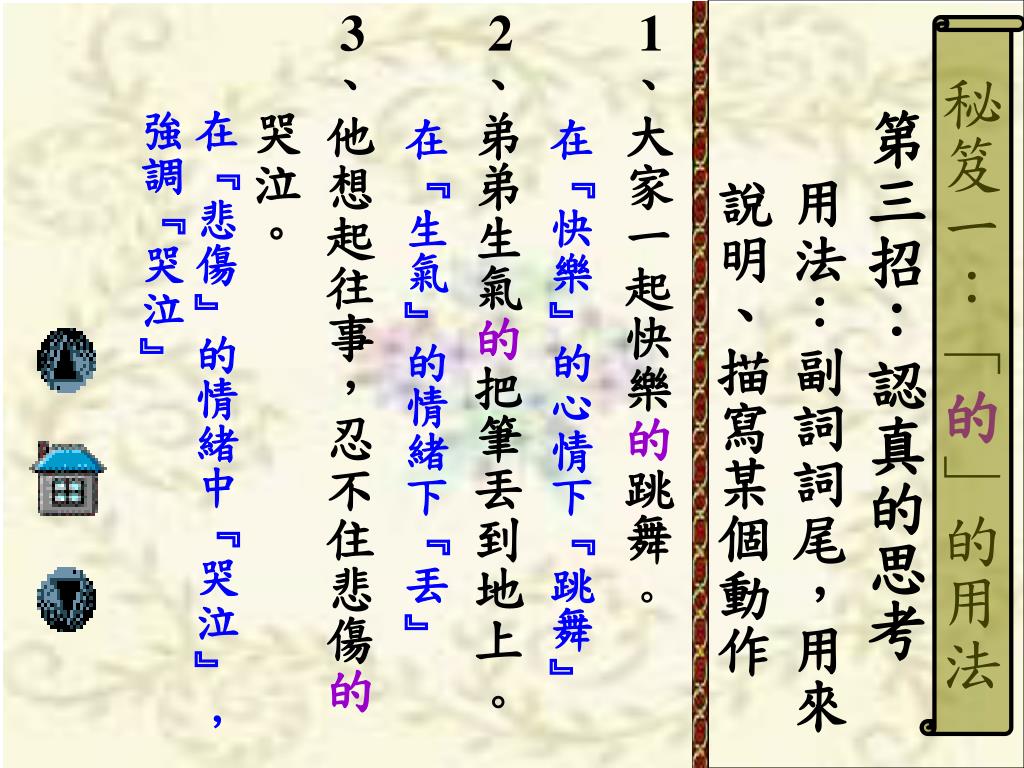 秘笈一：「的」的用法
第三招：認真的思考
用法：副詞詞尾，用來
說明、描寫某個動作
1、大家一起快樂的跳舞。
在『快樂』的心情下『跳舞』
2、弟弟生氣的把筆丟到地上。
在『生氣』的情緒下『丟』
3、他想起往事，忍不住悲傷的
哭泣。
在『悲傷』的情緒中『哭泣』，
強調『哭泣』